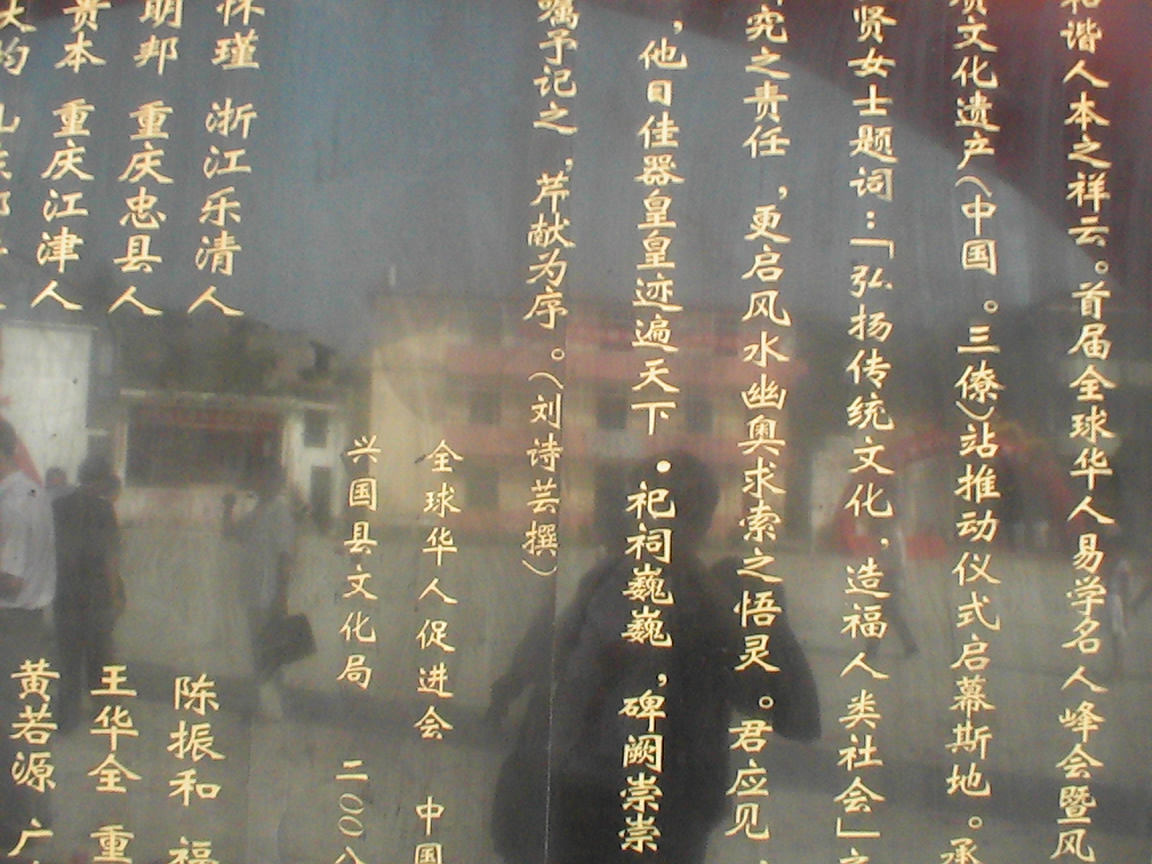 和谐人本之祥云。首届全球华人易学名人峰会暨风
文化遗产(中国。三僚)站推动仪式启幕斯地。承
贤女士题词：「弘扬传统文化，造福人类社会」之
究之责任，更启风水幽奥求索之悟灵。君应见，
，他日佳器皇皇迹遍天下·祀祠巍巍，碑阙崇崇
嘱予记之，芹献为序。(刘诗芸撰)
全球华人促进会 中国
兴国县文化局 二〇〇八
怀瑾 浙江乐清人
陈振和 福
明邦 重庆忠县人
王华全 重
贵本 重庆江津人
黄若源 广